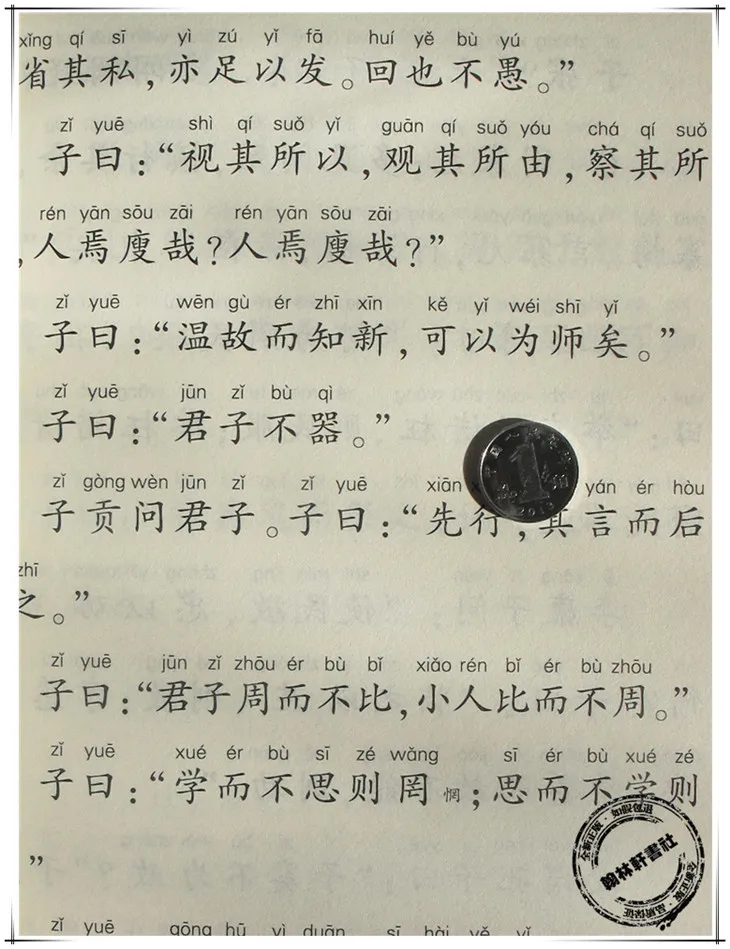 xǐng qí sī yì zú yǐ fā huí yě bù yú
省其私，亦足以发。回也不愚。”
zǐ yuē shì qí suǒ yǐ guān qí suǒ yóu chá qí suǒ
子曰：“视其所以，观其所由，察其所
rén yān sōu zāi rén yān sōu zāi
，人焉廋哉？人焉廋哉？”
zǐ yuē wēn gù ér zhī xīn kě yǐ wéi shī yǐ
子曰：“温故而知新，可以为师矣。”
zǐ yuē jūn zǐ bù qì
子曰：“君子不器。”
zǐ gòng wèn jūn zǐ zǐ yuē xiān yán ér hòu
子贡问君子。子曰：“先行，其言而后
zhī
之。”
zǐ yuē jūn zǐ zhōu ér bù bǐ xiǎo rén bǐ ér bù zhōu
子曰：“君子周而不比，小人比而不周。”
zǐ yuē xué ér bù sī zé wǎng sī ér bù xué zé
子曰：“学而不思则罔惘；思而不学则
”
zǐ yuē gōng hū yì duān sī hài yě yǐ
1
2013
全新正版·如假包退
翰林軒書社
全新正版·品质保证